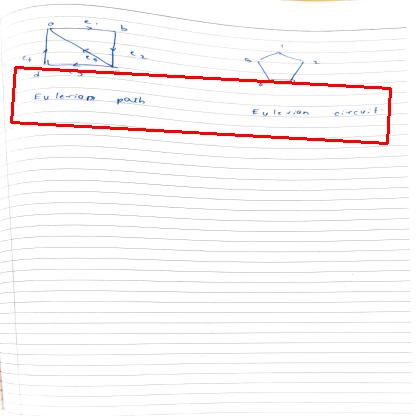 a e1 b
5 1 2
e4 e5 e2
d e3
Eulerian path
Eulerian circuit